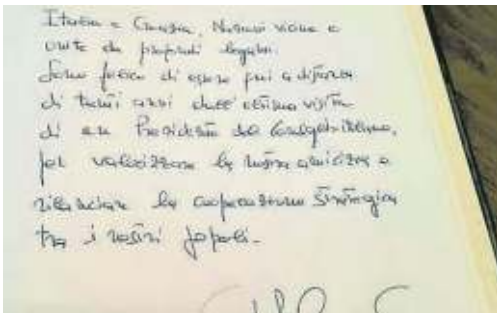 Italia e Croazia, Nazioni vicine e
unite da profondi legami.
Sono fiera di essere qui a distanza
di tanti anni dall'ultima visita
di un Presidente del Consiglio italiano,
per valorizzare la nostra amicizia e
rilanciare la cooperazione strategica
tra i nostri popoli.